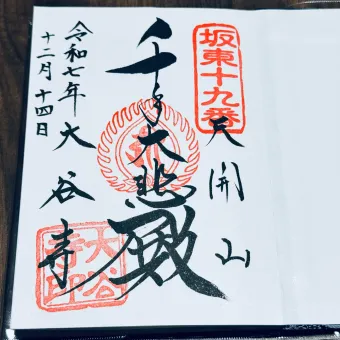 坂東十九番
天開山
千手大悲殿
大谷寺
令和七年
十二月十四日
大谷寺印